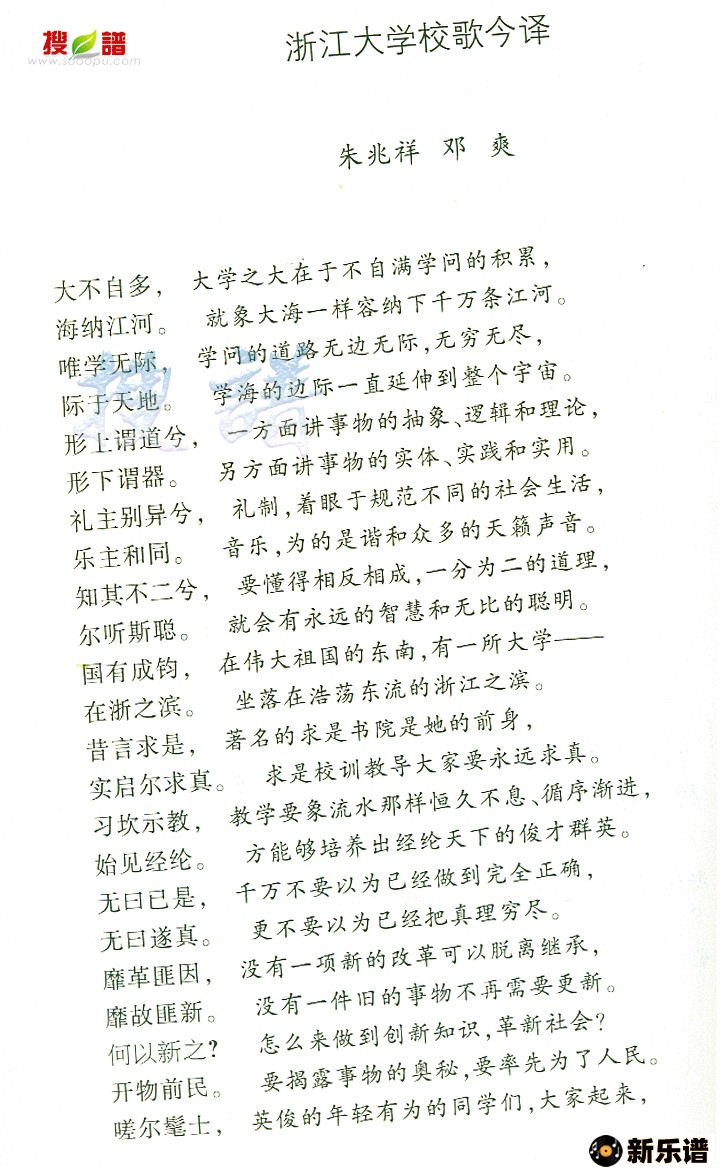 搜譜
www.sooopu.com
浙江大学校歌今译
朱兆祥 邓 爽
大不自多， 大学之大在于不自满学问的积累，
海纳江河。 就象大海一样容纳下千万条江河。
唯学无际， 学问的道路无边无际，无穷无尽，
际于天地。 学海的边际一直延伸到整个宇宙。
形上谓道兮， 一方面讲事物的抽象、逻辑和理论，
形下谓器。 另方面讲事物的实体、实践和实用。
礼主别异兮， 礼制，着眼于规范不同的社会生活，
乐主和同。 音乐，为的是谐和众多的天籁声音。
知其不二兮， 要懂得相反相成，一分为二的道理，
尔听斯聪。 就会有永远的智慧和无比的聪明。
国有成钧， 在伟大祖国的东南，有一所大学——
在浙之滨。 坐落在浩荡东流的浙江之滨。
昔言求是， 著名的求是书院是她的前身，
实启尔求真。 求是校训教导大家要永远求真。
习坎示教， 教学要象流水那样恒久不息、循序渐进，
始见经纶。 方能够培养出经纶天下的俊才群英。
无曰已是， 千万不要以为已经做到完全正确，
无曰遂真。 更不要以为已经把真理穷尽。
靡革匪因， 没有一项新的改革可以脱离继承，
靡故匪新。 没有一件旧的事物不再需要更新。
何以新之？ 怎么来做到创新知识，革新社会？
开物前民。 要揭露事物的奥秘，要率先为了人民。
嗟尔髦士， 英俊的年轻有为的同学们，大家起来，
搜譜
新乐谱